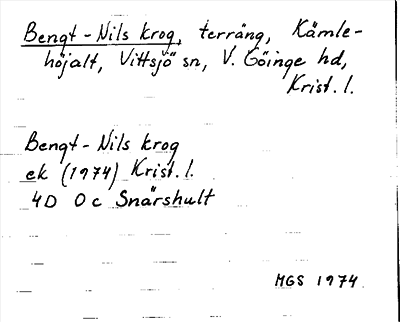 Bengt-Nils krog, terräng, Kämle-
höjalt, Vittsjö sn, V. Göinge hd,
Krist. l.
Bengt-Nils krog
ek (1974) Krist. l.
4D 0c Snärshult
MGS 1974.